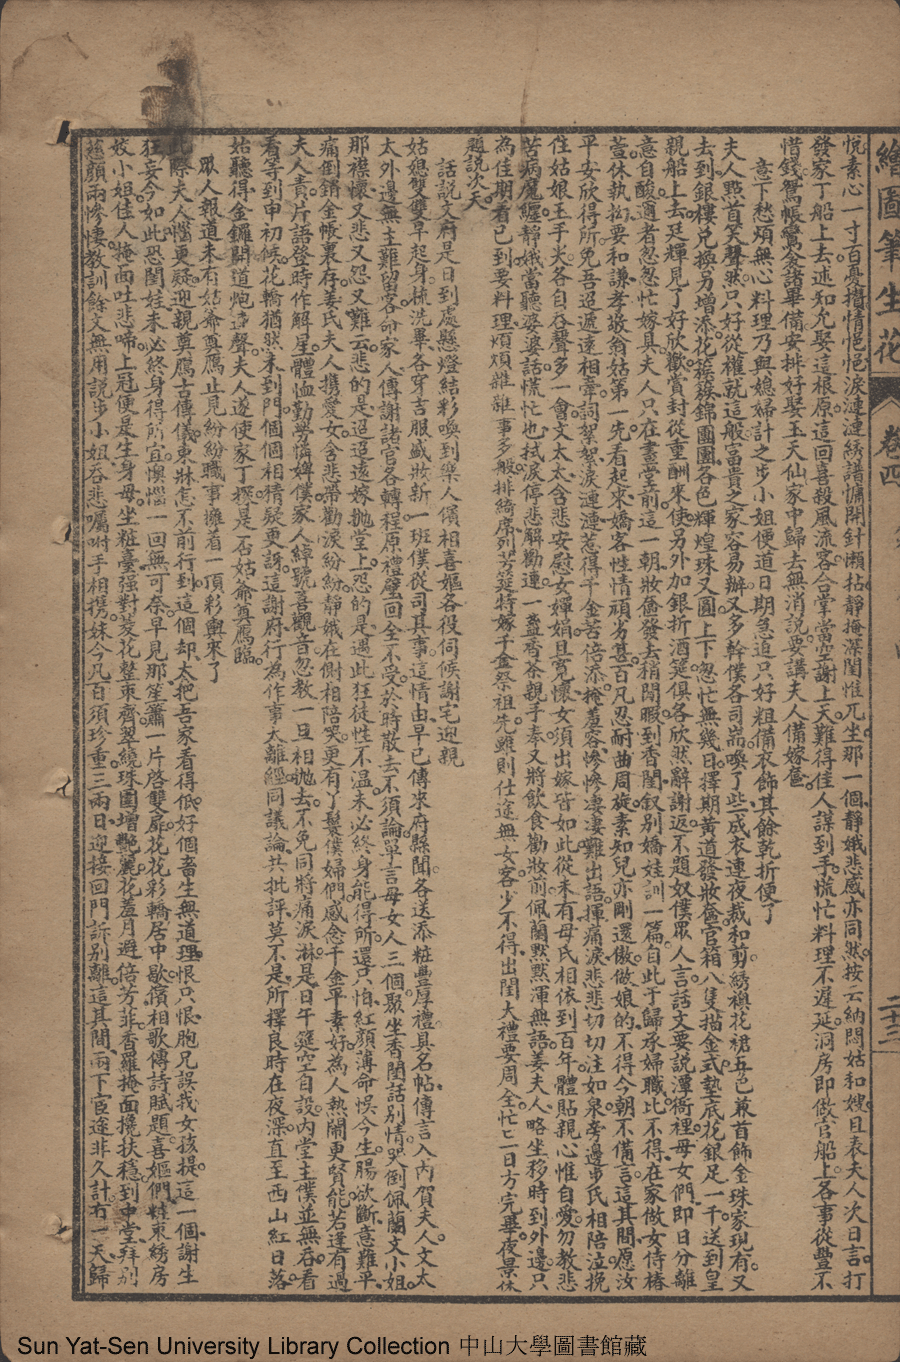 繪圖筆生花 卷四 二十三
悅素心一寸百憂攢情悒悒淚漣漣連綉譜慵開針懶拈靜掩深閨惟兀坐那一個靜娥悲感亦同然按云納悶姑和嫂且表夫人次日言打
發家丁船上去述知允娶這根原這回喜殺風流客合掌當空謝上天難得佳人謀到手慌忙料理不遲延洞房即做官船上各事從豐不
惜錢鴛帳鴦衾諸畢備安排好娶玉天仙家中歸去無消說要講夫人備嫁奩
意下愁煩無心料理乃與媳婦計之步小姐便道日期急迫只好粗備衣飾其餘乾折便了
夫人點首笑聲然只好從權就這般富貴之家容易辦又多幹僕各司耑喚了些成衣連夜裁和剪綉襖花裙五色兼首飾金珠家現有又
去到銀樓兌換另增添花簇簇錦團團各色輝煌珠又圓上下忽忙無幾日擇期黃道發妝奩官箱八隻描金式墊底花銀足一千送到皇
親船上去廷輝見了好欣歡賞封從重酬來使另外加銀折酒筵俱各欣然辭謝返不題奴僕眾人言話文要說潭衙裡母女們即日分離
意自酸適者怱怱忙嫁具夫人只在畫堂前這一朝妝奩發去稍閒暇到香閨叙別嬌娃訓一篇自此于歸承婦職比不得在家做女侍椿
萱休執拗要和謙孝敬翁姑第一先看起來嬌客性情頑劣甚百凡忍耐曲周旋素知兒亦剛還傲做娘的不得今朝不備言這其間愿汝
平安欣得所免吾迢遞遠相牽詞絮絮淚連漣惹得千金苦倍添掩羞容慘慘淒淒難出語揮痛淚悲悲切切注如泉旁邊步氏相陪泣挽
住姑娘玉手尖各自吞聲多一會文太太含悲安慰女嬋娟且寬懷女須出嫁皆如此從未有母氏相依到百年體貼親心惟自愛勿教悲
苦病魔纏靜娥當聽婆婆話慌忙也拭淚停悲解勸連一盞香茶親手奉又將飲食勸妝前佩蘭默默渾無語姜夫人略坐移時到外邊只
為佳期看已到要料理煩煩雜雜事多般排綺席列芳筵特嫁千金祭祖先雖則仕途無女客少不得出閨大禮要周全忙忙一日方完畢夜景休
題說次天
話說文府是日到處懸燈結彩喚到樂人儐相喜嫗各役伺候謝宅迎親
姑媳雙雙早起身梳洗畢各穿吉服盛妝新一班僕從司其事這情由早已傳來府縣聞各送添粧豐厚禮具名帖傳言入內賀夫人文太
太外邊無主難留客命家人傳謝諸官各轉程原禮璧回全不受於時散去不須論單言母女人三個聚坐香閨話別情哭倒佩蘭文小姐
那襟懷又悲又怨又難云悲的是迢迢遠嫁拋堂上怨的是遇此狂徒性不溫未必終身能得所還只怕紅顏薄命悞今生腸欲斷意難平
痛倒錯金帳裏存姜氏夫人攜愛女含悲帶勸淚紛紛靜娥在側相陪哭更有了鬟僕婦們感念千金平素好為人熱鬧更賢能若逢有過
夫人責片語登時作解星體恤勤勞憐婢僕家人綽號喜觀音忽教一旦相拋去不免同將痛淚淋是日午筵空自設內堂主僕並無吞看
看等到申初候花輪猶然未到門個個相猜疑更訝這謝府行為作事太離經同議論共批評莫不是所擇良時在夜深直至西山紅日落
始聽得金鑼開道炮連聲夫人遂使家丁探是否姑爺奠鴈臨
眾人報道未有姑爺奠鴈止見紛紛職事擁着一頂彩輿來了
此際夫人惱更疑迎親奠鴈古傳儀東牀怎不前行到這個却太把吾家看得低好個畜生無道理恨只恨胞兄誤我女孩提這一個謝生
狂妄今如此恐閨娃未必終身得所宜懊惱一回無可奈早見那笙簫一片啓雙扉花花彩轎居中歇儐相歌傳詩賦題喜嫗們轉東綉房
姣小姐佳人掩面吐悲啼上冠便是生身母坐粧臺强對菱花整束齊翠繞珠圍增艷麗花羞月避倍芳菲香羅掩面攙扶穩到中堂拜別
慈顏兩慘悽教訓餘文無用説步小姐吞悲囑咐手相携妹今凡百須珍重三兩日迎接回門訴別離這其間兩下官途非久計有一天歸
Sun Yat-Sen University Library Collection 中山大學圖書館藏